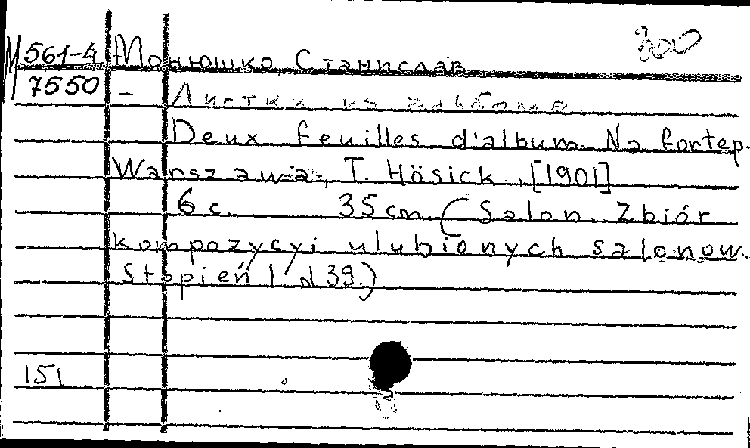 300
М 561-4 Монюшко, Станислав
7550 - Листки из альбома
Deux feuilles d'album. Na fortep.
Warszawa, T. Hösick, [1901]
6 с. 35 см. (Salon. Zbiór
kompozycyi ulubionych salonow.
Stopień I, N 39)
151